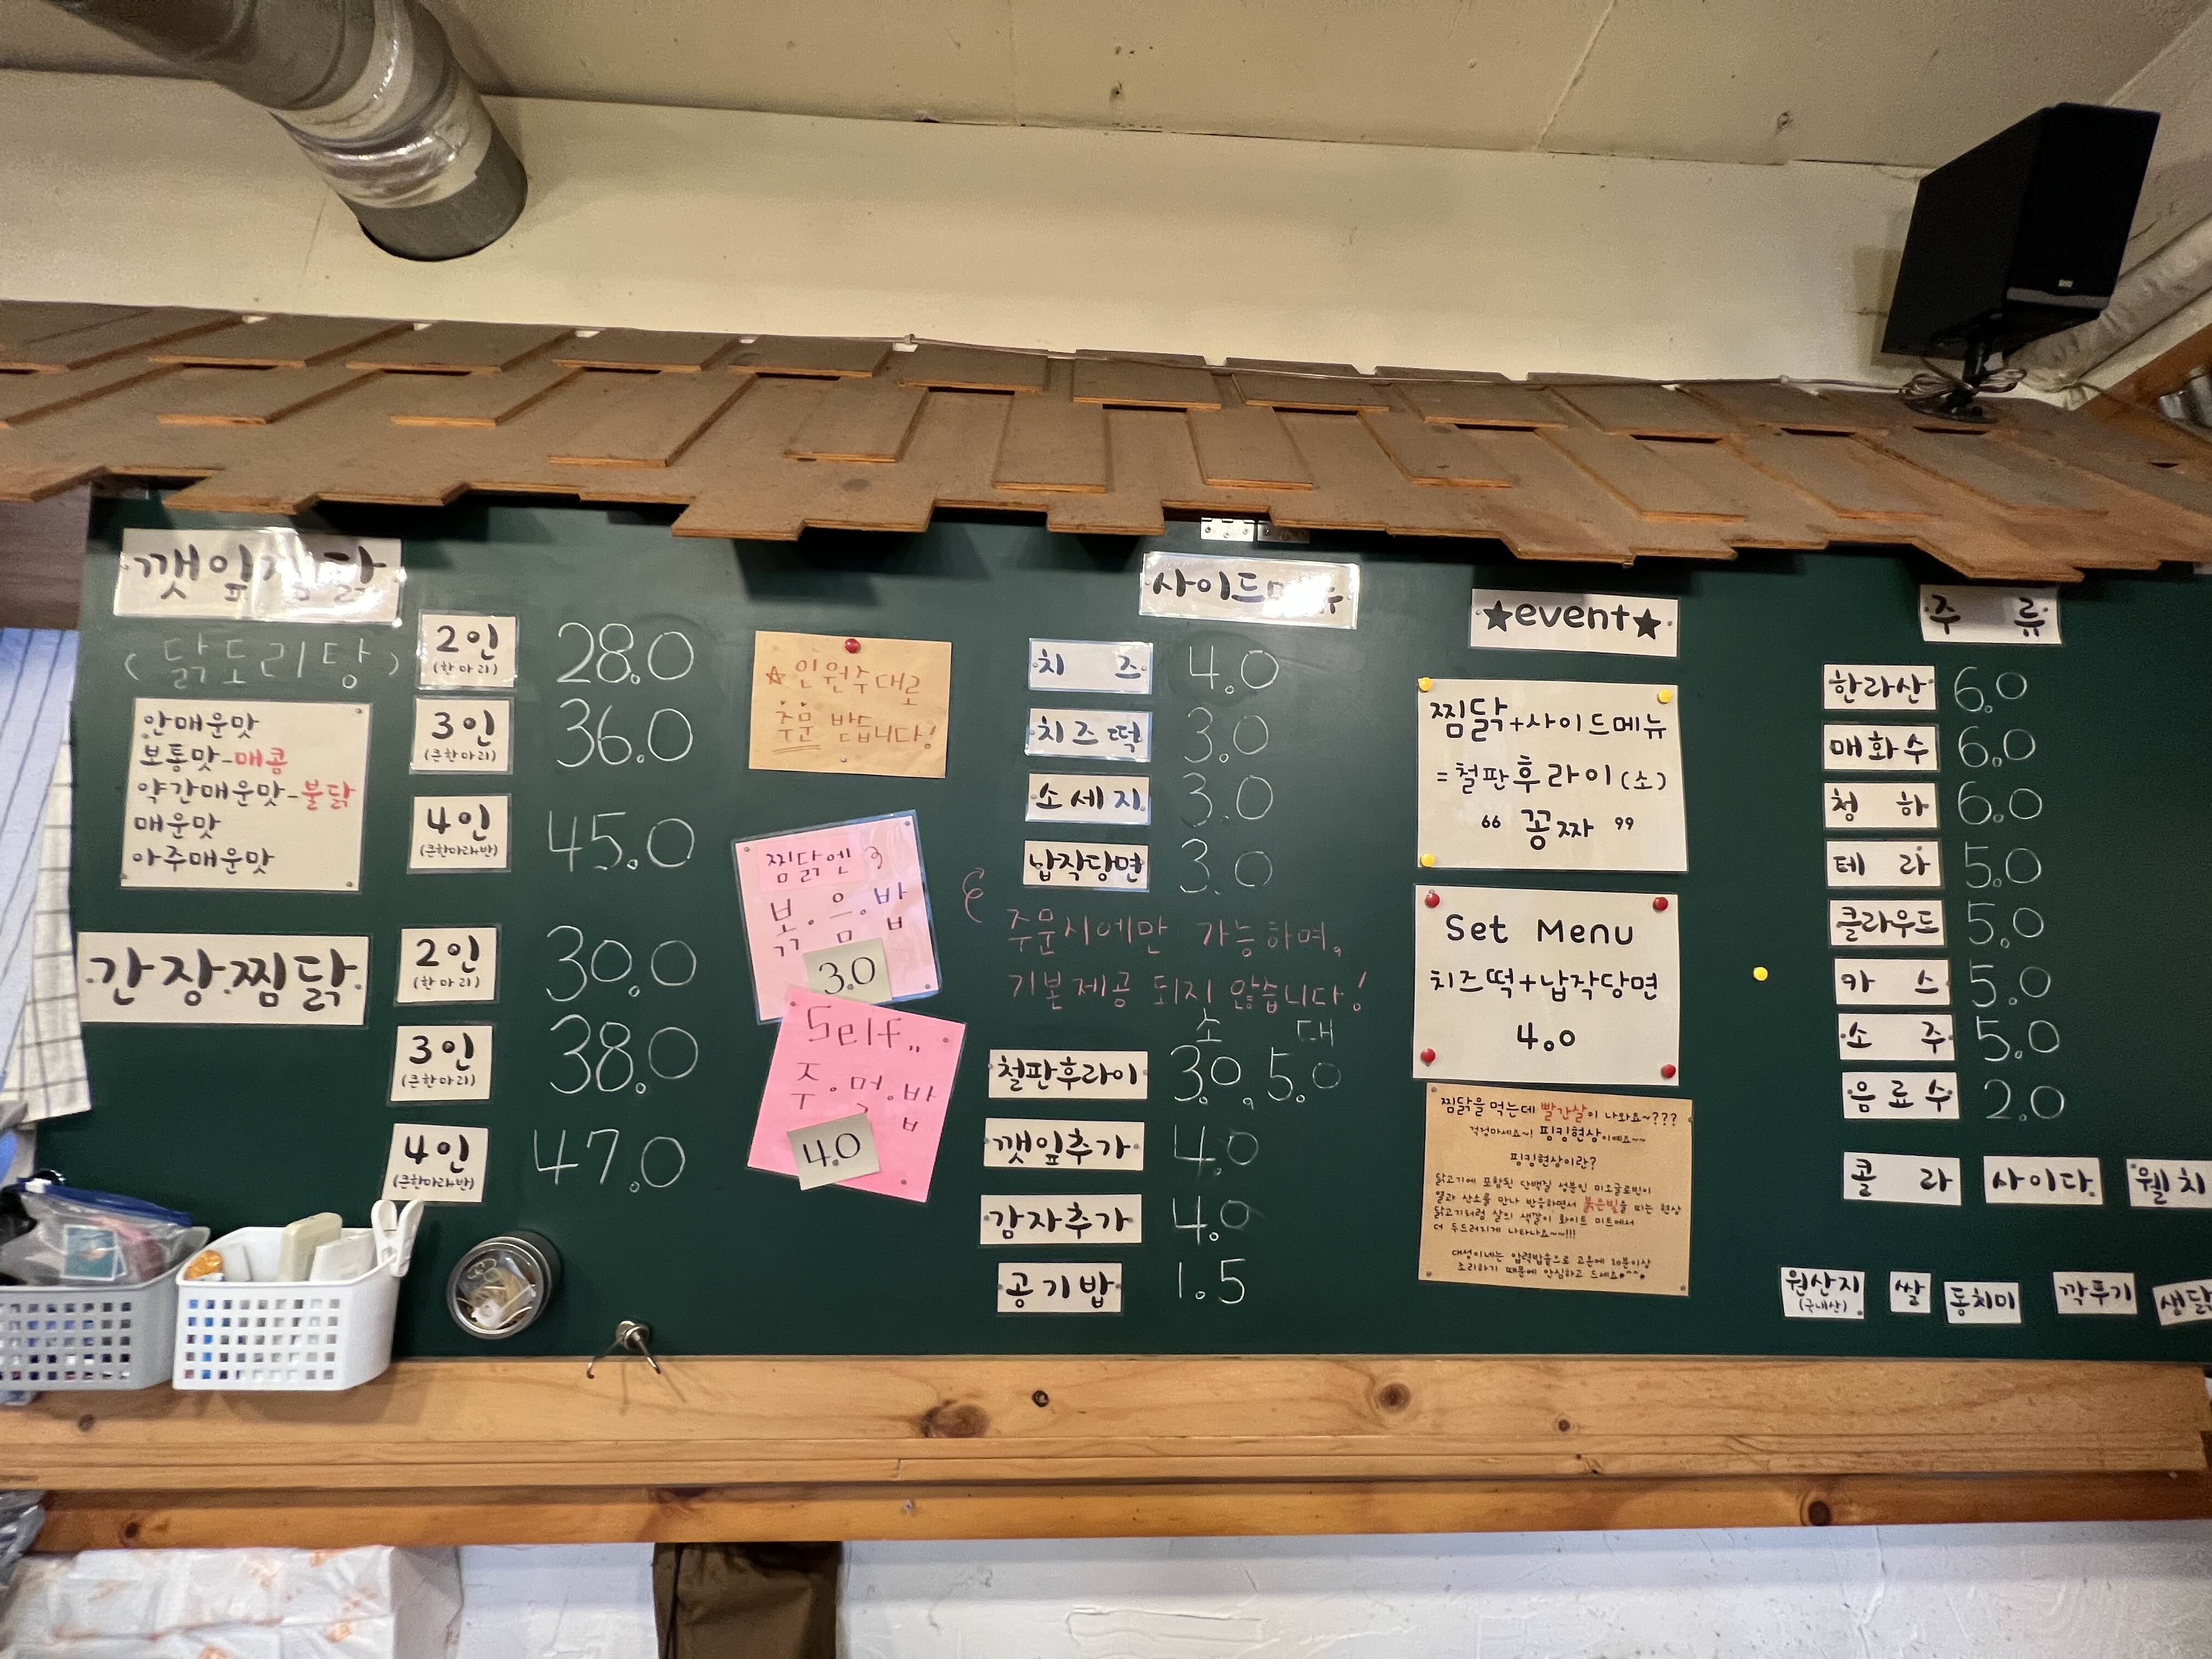 깻잎찜닭
(닭도리탕)
안매운맛
보통맛-매콤
약간매운맛-불닭
매운맛
아주매운맛
2인 28.0
(한마리)
3인 36.0
(큰한마리)
4인 45.0
(큰한마리반)
간장찜닭
2인 30.0
(한마리)
3인 38.0
(큰한마리)
4인 47.0
(큰한마리반)
☆인원수대로
주문 받습니다!
찜닭엔
볶.음.밥
3.0
Self..
주.먹.밥
4.0
사이드메뉴
치즈 4.0
치즈떡 3.0
소세지 3.0
납작당면 3.0
주문시에만 가능하며,
기본제공 되지 않습니다!
소 대
철판후라이 3.0, 5.0
깻잎추가 4.0
감자추가 4.0
공기밥 1.5
★event★
찜닭+사이드메뉴
=철판후라이(소)
“ 꽁짜 ”
Set Menu
치즈떡+납작당면
4.0
찜닭을 먹는데 빨간살이 나와요~???
걱정마세요~! 핑킹현상이예요~~
핑킹현상이란?
닭고기에 포함된 단백질 성분인 미오글로빈이
열과 산소를 만나 반응하면서 붉은빛을 띠는 현상
닭고기처럼 살의 색깔이 화이트 미트에서
더 두드러지게 나타나요~~!!!
대성이네는 압력밥솥으로 고온에 30분이상
조리하기 때문에 안심하고 드세요^^
주류
한라산 6.0
매화수 6.0
청하 6.0
테라 5.0
클라우드 5.0
카스 5.0
소주 5.0
음료수 2.0
콜라 사이다 웰치
원산지 쌀 동치미 깍두기 생닭
(국내산)